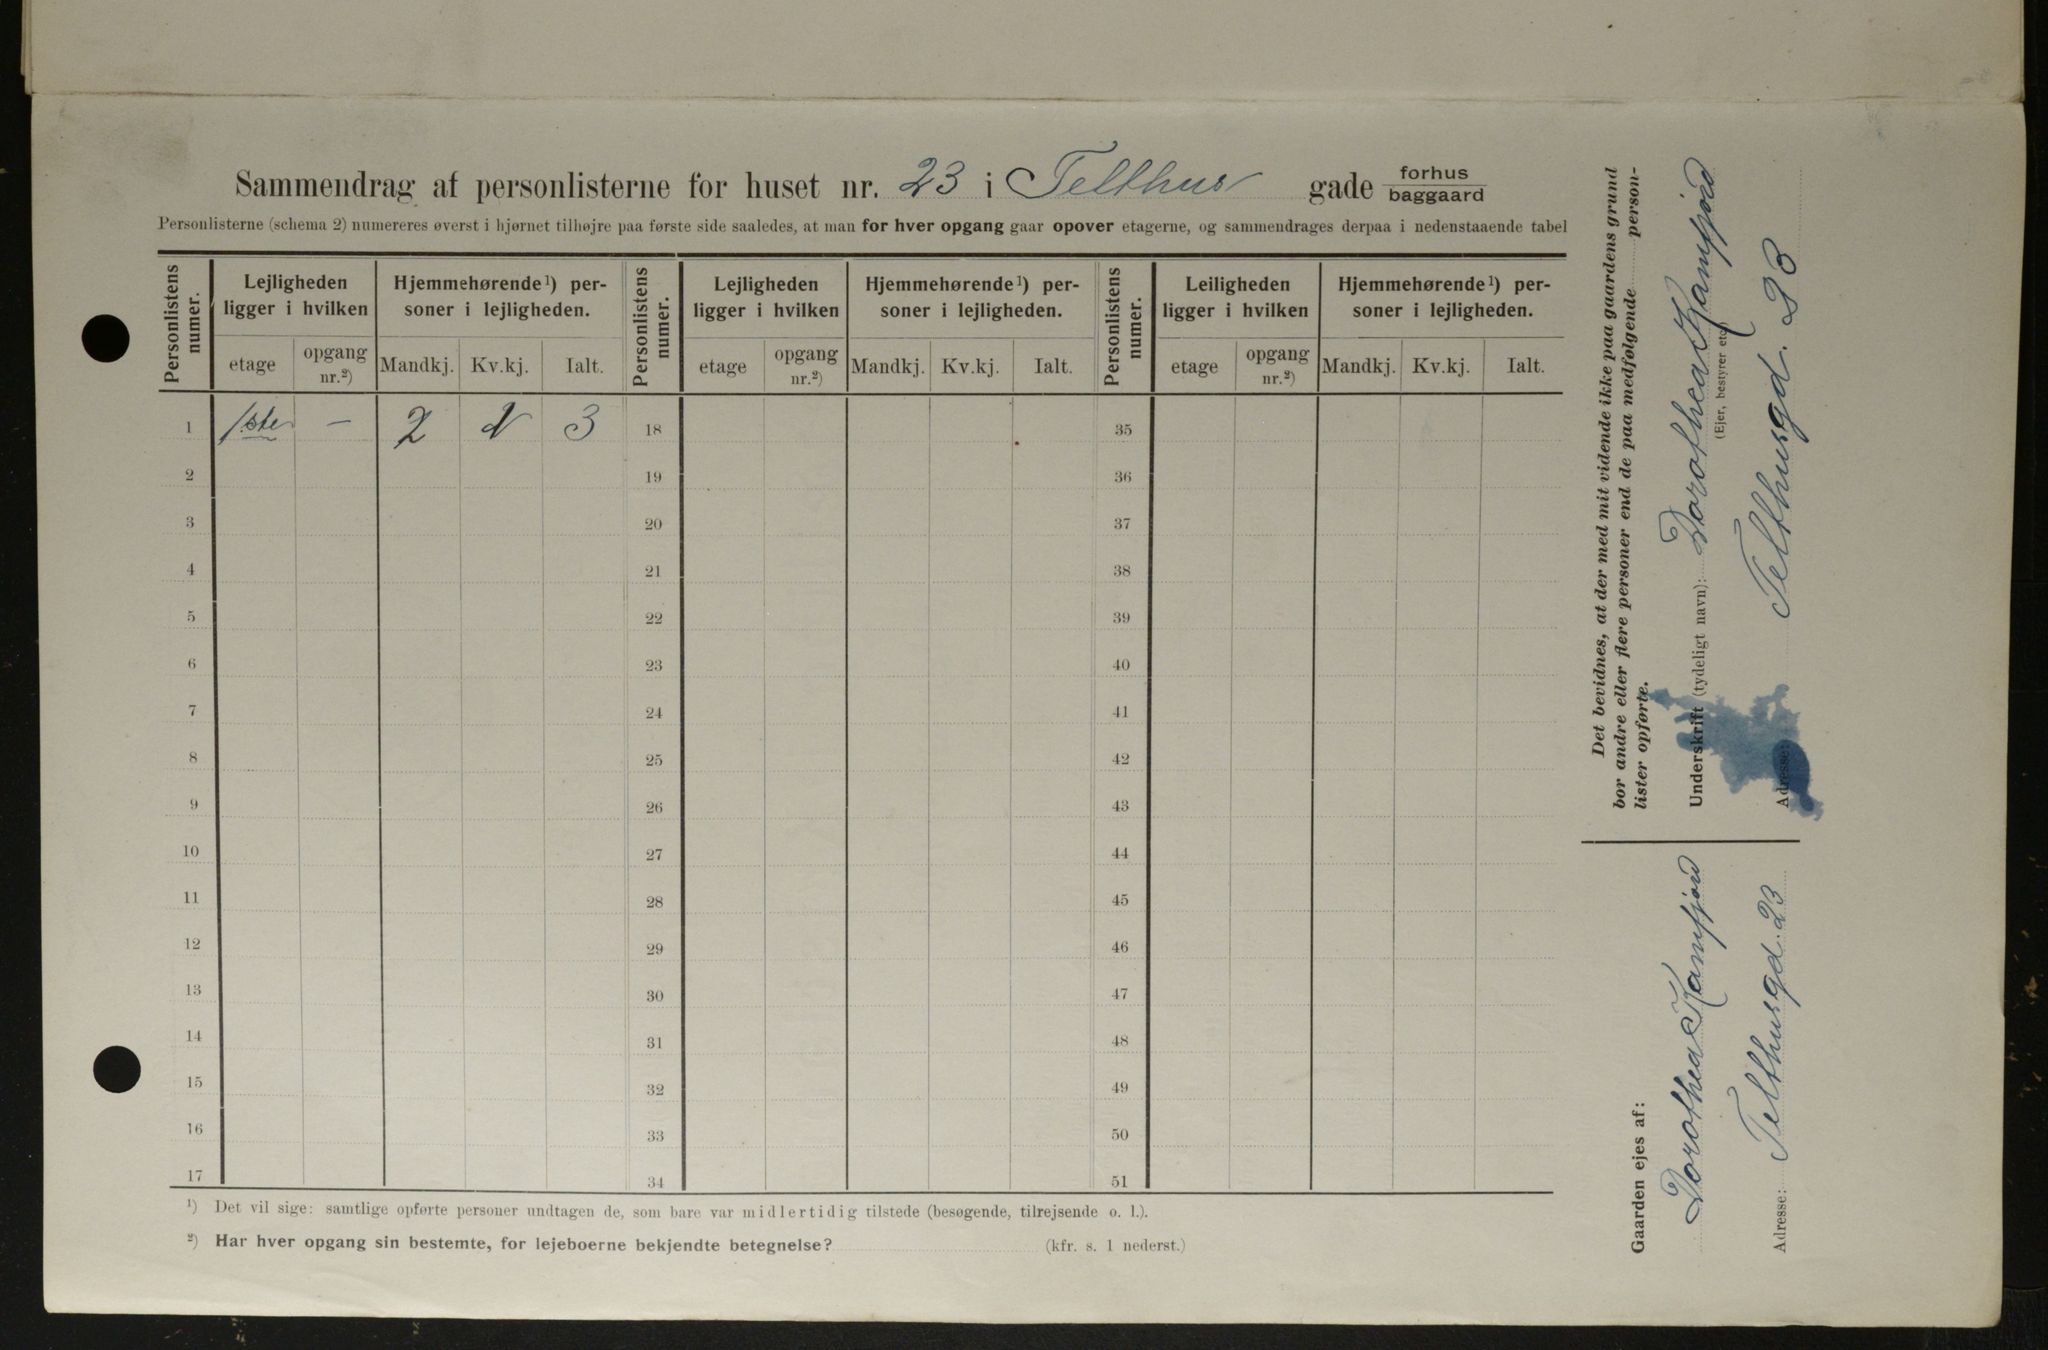 Sammendrag af personlisterne for huset nr. 23 i Telthus gade forhus baggaard
Personlisterne (schema 2) numereres øverst i hjørnet tilhøjre paa første side saaledes, at man for hver opgang gaar opover etagerne, og sammendrages derpaa i nedenstaaende tabel
Personlistens numer. Lejligheden ligger i hvilken Hjemmehørende¹) personer i lejligheden. Personlistens numer. Lejligheden ligger i hvilken Hjemmehørende¹) personer i lejligheden. Personlistens numer. Leiligheden ligger i hvilken Hjemmehørende¹) personer i lejligheden.
etage opgang nr.²) Mandkj. Kv.kj. Ialt. etage opgang nr.²) Mandkj. Kv.kj. Ialt. etage opgang nr.²) Mandkj. Kv.kj. Ialt.
1 1ste – 2 1 3 18 35
2 19 36
3 20 37
4 21 38
5 22 39
6 23 40
7 24 41
8 25 42
9 26 43
10 27 44
11 28 45
12 29 46
13 30 47
14 31 48
15 32 49
16 33 50
17 34 51
¹) Det vil sige: samtlige opførte personer undtagen de, som bare var midlertidig tilstede (besøgende, tilrejsende o. l.).
²) Har hver opgang sin bestemte, for lejeboerne bekjendte betegnelse? (kfr. s. 1 nederst.)
Det bevidnes, at der med mit vidende ikke paa gaardens grund
bor andre eller flere personer end de paa medfølgende person-
lister opførte.
Underskrift (tydeligt navn): Dorothea Kamfjord
(Ejer, bestyrer etc.)
Adresse: Telthusgd. 23
Gaarden ejes af:
Dorothea Kamfjord
Adresse: Telthusgd. 23